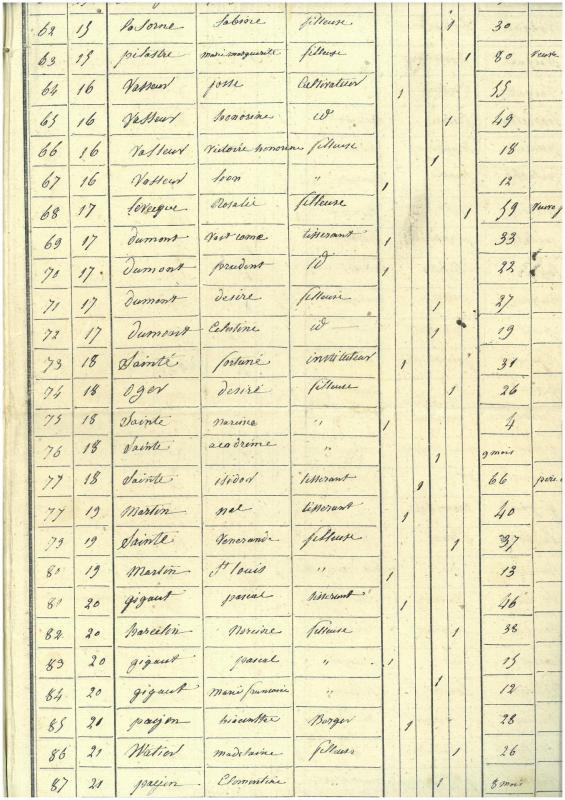 62 15 Lasorne Sabine fileuse 1 30
63 15 pilastre marie marguerite fileuse 1 80 veuve
64 16 Vasseur josse Cultivateur 1 55
65 16 Vasseur honorine id 1 49
66 16 Vasseur Victoire honorine fileuse 1 18
67 16 Vasseur Leon " 1 12
68 17 Leveque Rosalie fileuse 1 59 veuve
69 17 dumont Vast come tisserant 1 33
70 17 dumont prudent id 1 22
71 17 dumont desire fileuse 1 27
72 17 dumont Celestine id 1 19
73 18 Sainte fortuné instituteur 1 31
74 18 Oger desiré fileuse 1 26
75 18 Sainte narcisse " 1 4
76 18 Sainte " 1 9 mois
77 18 Sainte isidor tisserant 1 66 pere
77 19 Martin tisserant 1 40
79 19 Sainte Venerande fileuse 1 37
80 19 Martin St louis " 1 13
81 20 gigaut pascal tisserant 1 46
82 20 Narcisse fileuse 1 38
83 20 gigaut pascal " 1 15
84 20 gigaut marie francoise " 1 12
85 21 paejen hiacinthe Berger 1 28
86 21 Watier madelaine fileuse 1 26
87 21 paejen Clementine " 1 8 mois